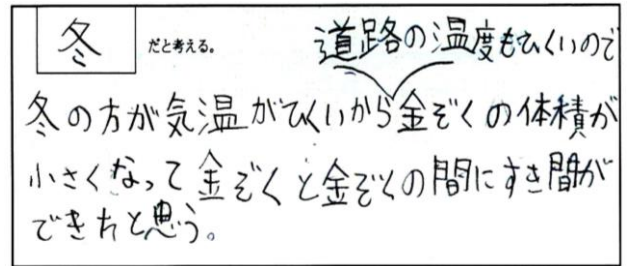 冬 だと考える。
道路の温度もひくいので
冬の方が気温がひくいから金ぞくの体積が
小さくなって金ぞくと金ぞくの間にすき間が
できたと思う。